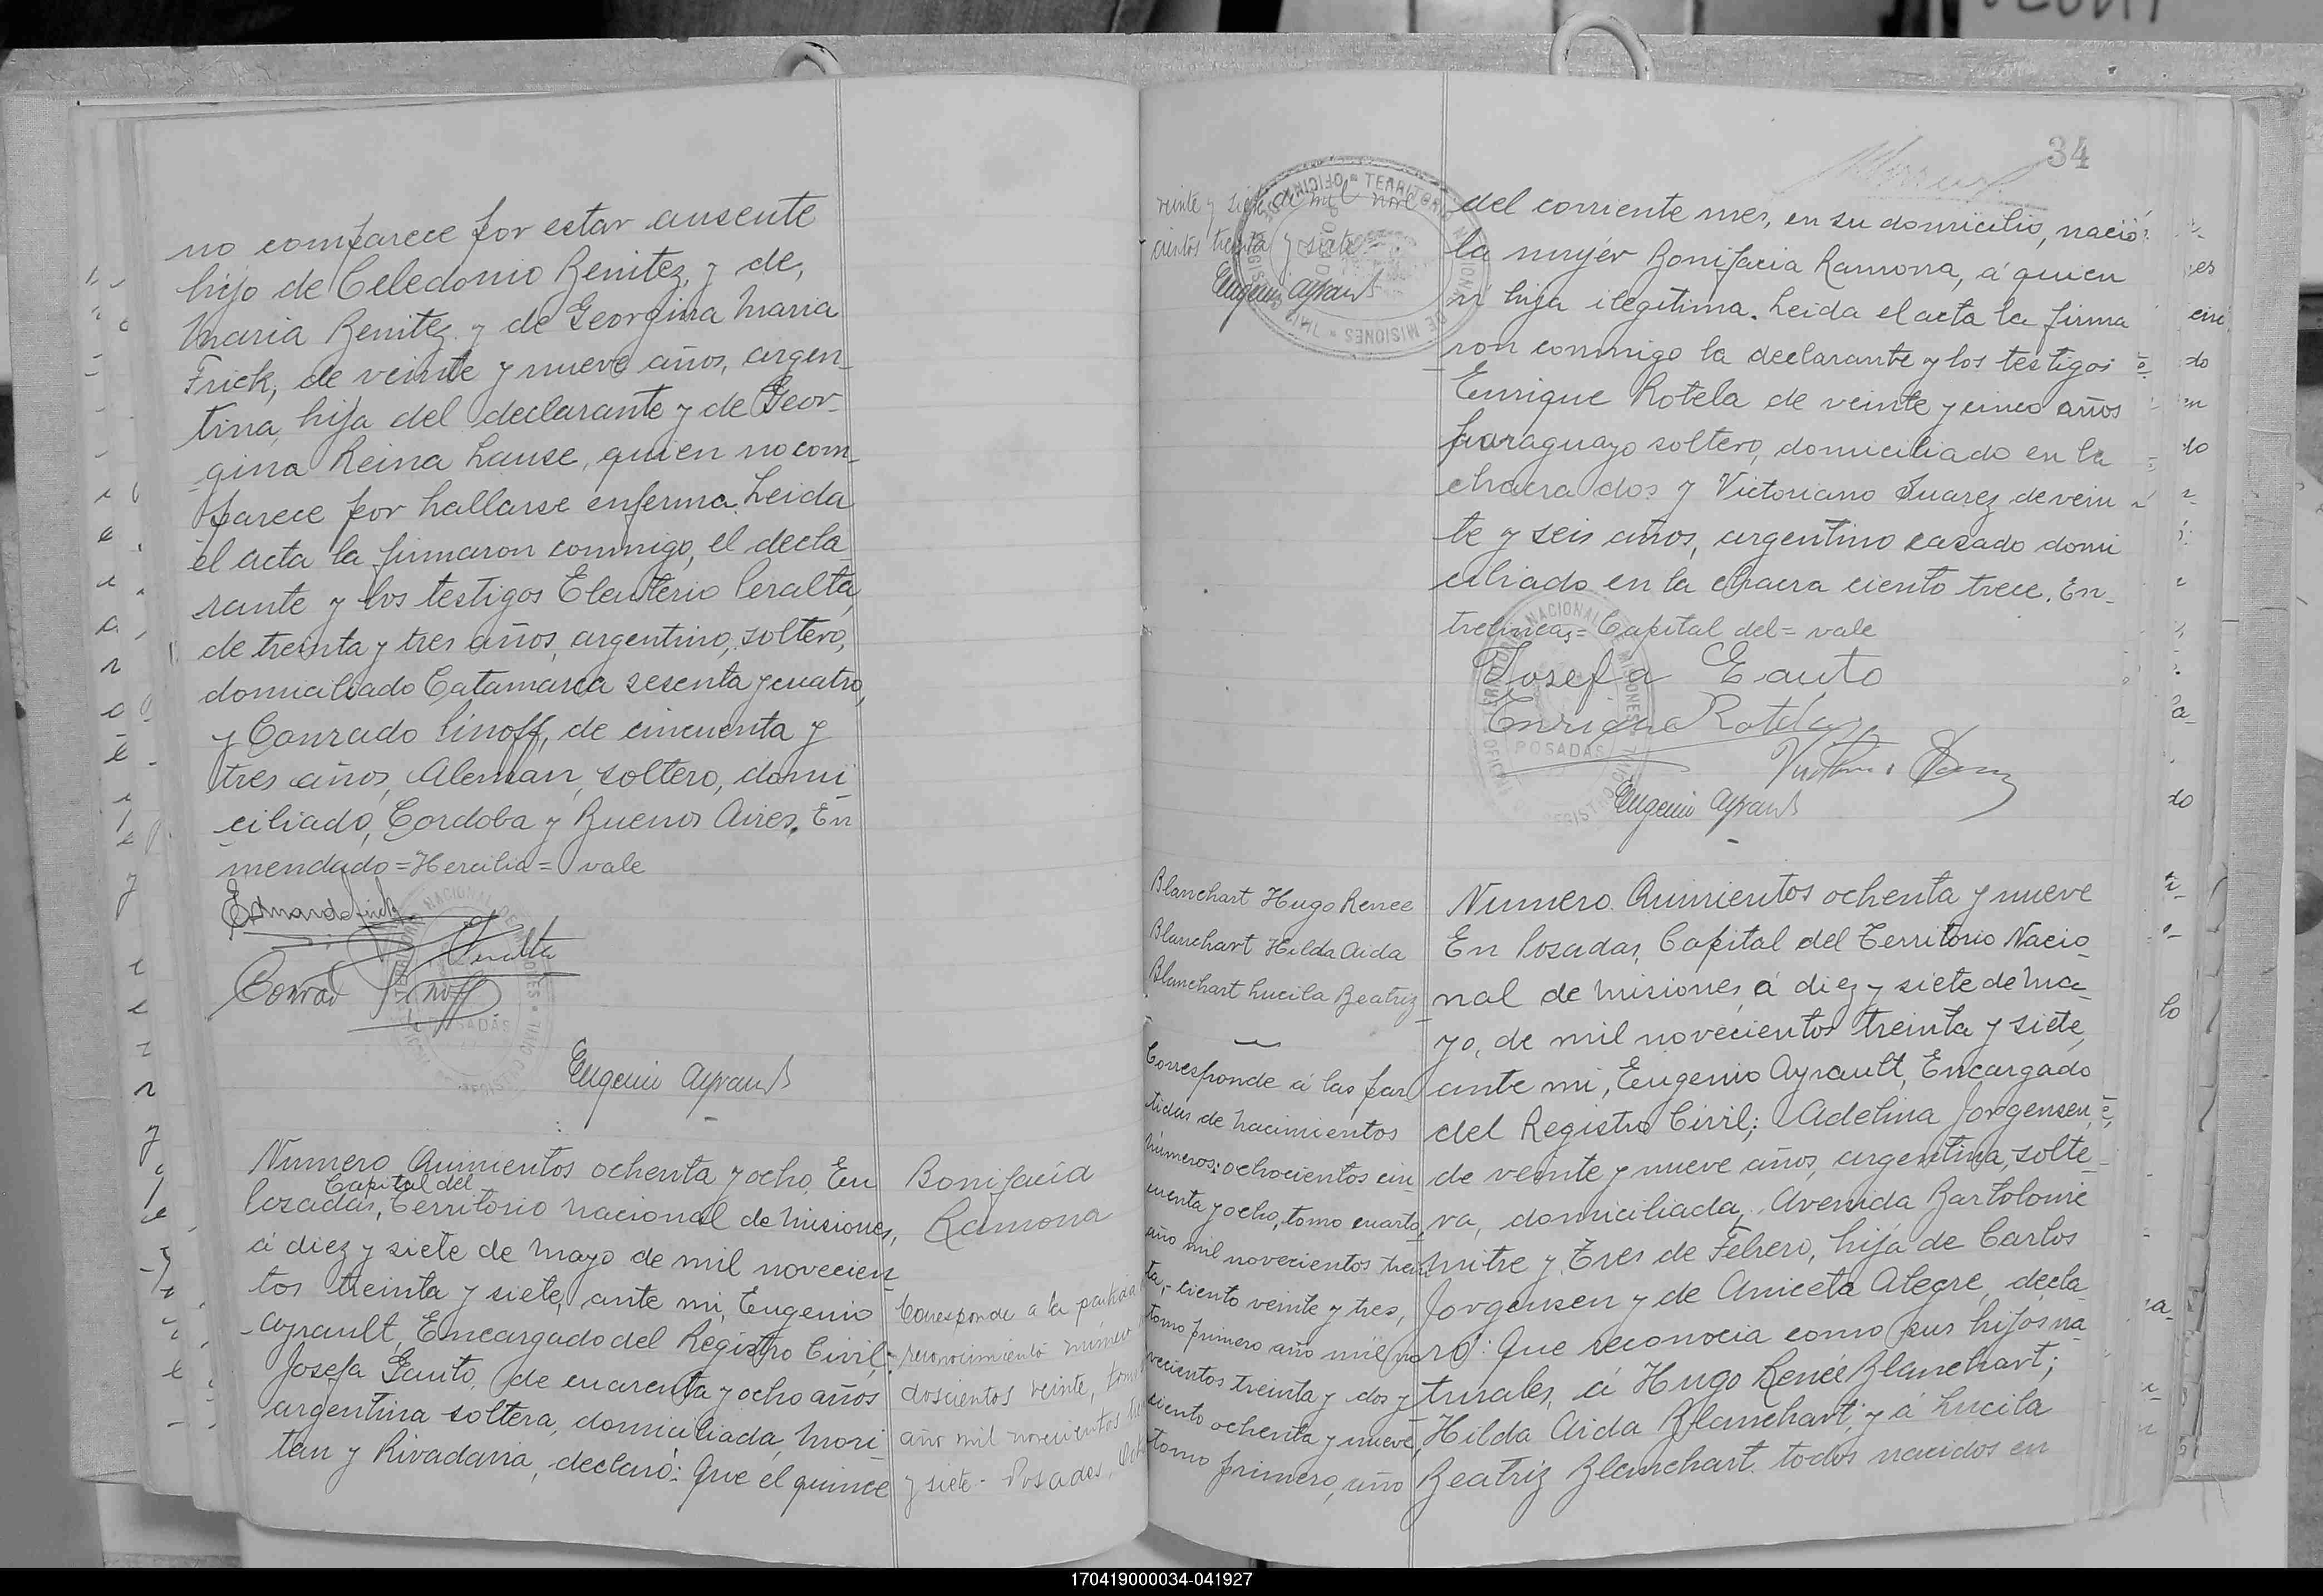 no comparece por estar ausente
hijo de Celedonio Benitez, y de,
Maria Benitez y de Georgina Maria
Frick, de veinte y nueve años, argen-
tina, hija del declarante y de Geor-
gina Reina Lause, quien no com-
parece por hallarse enferma. Leida
el acta la firmaron conmigo, el decla
rante y los testigos Eleuterio Peralta,
de treinta y tres años, argentino, soltero,
domiciliado Catamarca sesenta y cuatro,
y Conrado Sinoff, de cincuenta y
tres años, Aleman, soltero, domi-
ciliado, Cordoba y Buenos Aires. En
mendado = Hercilia = vale
Conrad Sinoff
Eugenio Ayrault
Numero Quinientos ochenta y ocho. En
Capital del
Posadas, Territorio Nacional de Misiones,
á diez y siete de Mayo de mil novecien-
tos treinta y siete, ante mi, Eugenio
Ayrault, Encargado del Registro Civil;
Josefa Gauto, de cuarenta y ocho años
argentina soltera, domiciliada, Mori-
tan y Rivadavia, declaró: Que el quince
Bonifacia
Ramona
Corresponde a la partida
reconocimiento número
doscientos veinte, tomo
año mil novecientos
y siete - Posadas,
34
veinte y siete de mil nove
cientos treinta y siete
Eugenio Ayrault
del corriente mes, en su domicilio, nació
la mujer Bonifacia Ramona, á quien
hija ilegitima. Leida el acta la firma
ron conmigo la declarante y los testigos
Enrique Rotela de veinte y cinco años
paraguayo soltero, domiciliado en la
chacra dos y Victoriano Suarez de vein
te y seis años, argentino casado domi
ciliado en la chacra ciento trece. En-
trelineas = Capital del = vale
Josefa Gauto
Enrique Rotela
POSADAS
Eugenio Ayrault
Blanchart Hugo Renee
Blanchart Hilda Aida
Blanchart Lucila Beatriz
Corresponde á las par
tidas de nacimientos
números: ochocientos cin
cuenta y ocho, tomo cuarto,
año mil novecientos trein
ta, - ciento veinte y tres,
tomo primero año mil no
vecientos treinta y dos y
ciento ochenta y nueve,
tomo primero, año
Numero Quinientos ochenta y nueve
En Posadas, Capital del Territorio Nacio-
nal de Misiones, á diez y siete de Ma-
yo, de mil novecientos treinta y siete,
ante mi, Eugenio Ayrault, Encargado
del Registro Civil; Adelina Jorgensen,
de veinte y nueve años, argentina, solte-
ra, domiciliada, Avenida Bartolomé
Mitre y Tres de Febrero, hija de Carlos
Jorgensen y de Aniceta Alegre, decla
ró: Que reconocia como sus hijos na-
turales, á Hugo Reneé Blanchart;
Hilda Aida Blanchart; y á Lucila
Beatriz Blanchart. todos nacidos en
170419000034-041927